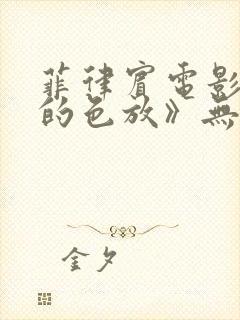 菲律宾電影
的色放》無
金夕